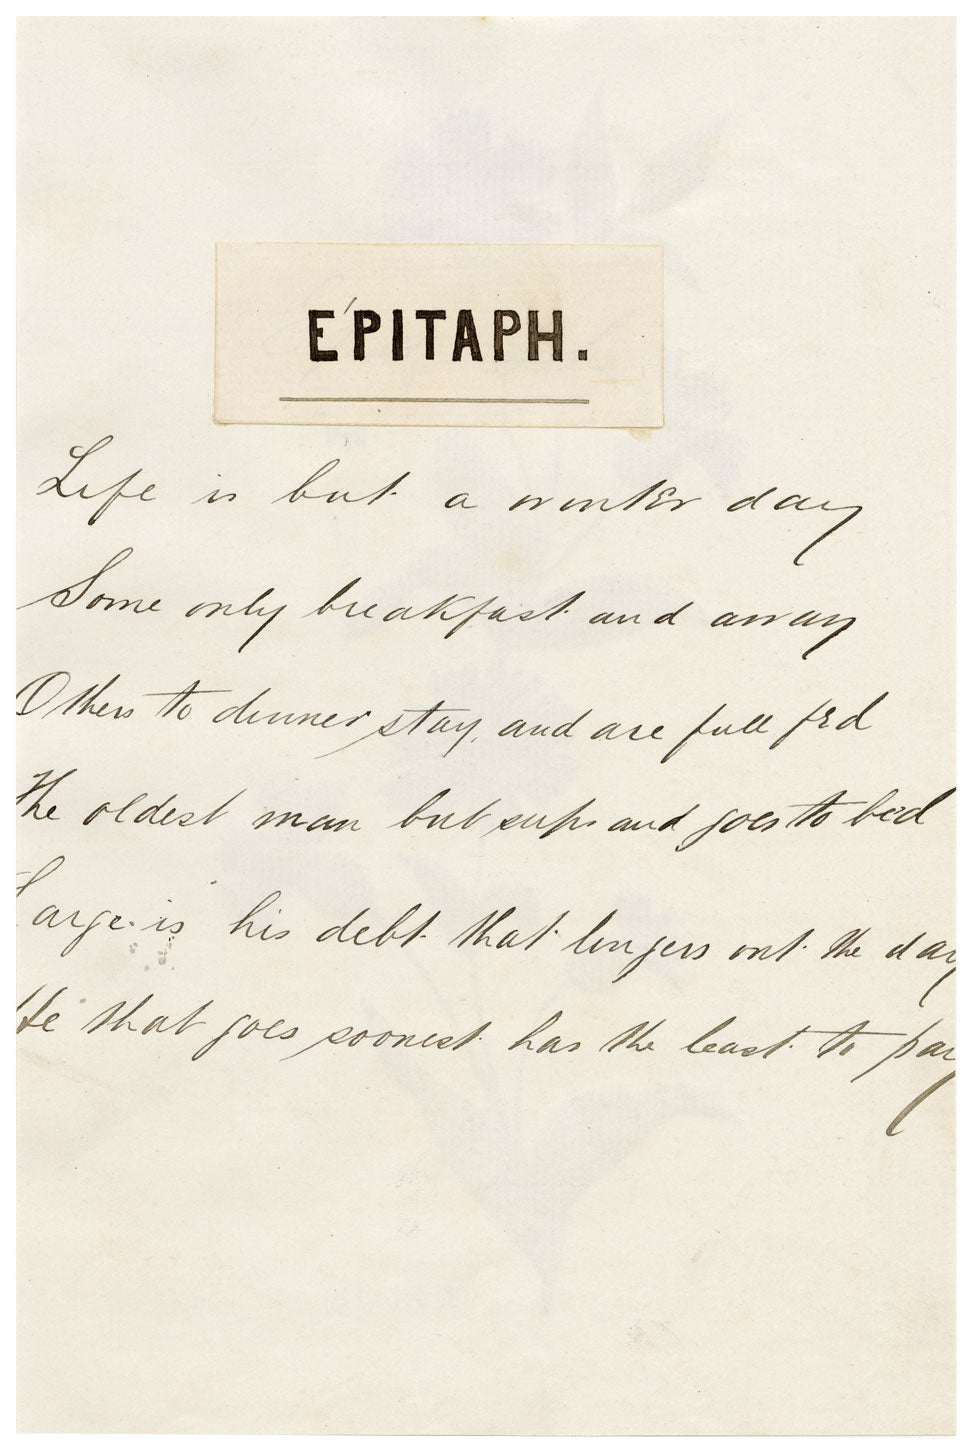 EPITAPH.
Life is but a winter day
Some only breakfast and away
Others to dinner stay, and are full fed
The oldest man but sups and goes to bed
Large is his debt that lingers out the day
He that goes soonest has the least to pay